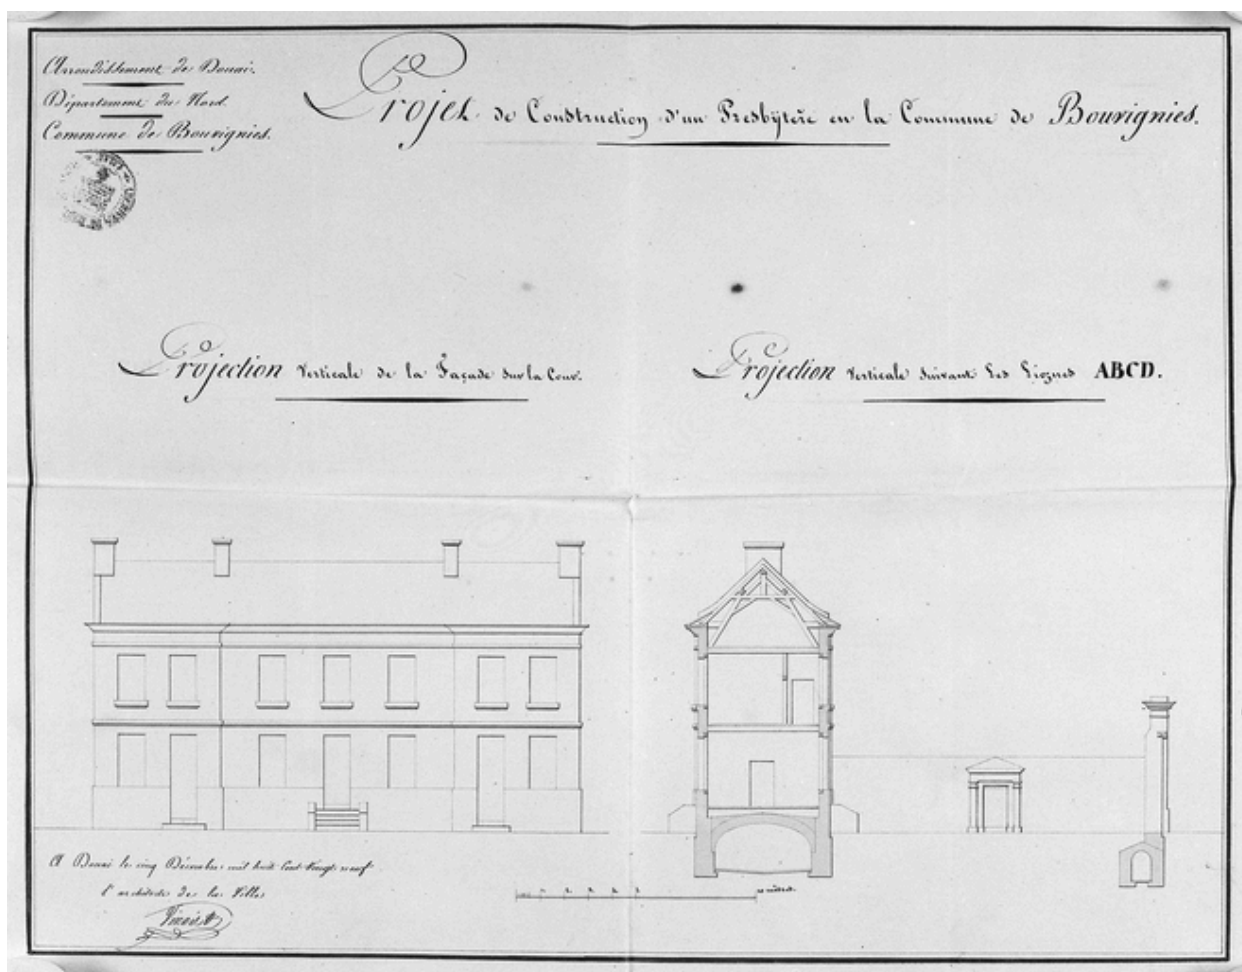 Arrondissement de Douai.
Département du Nord.
Commune de Bouvignies.
Projet de Construction d'un Presbytère en la Commune de Bouvignies.
Projection Verticale de la Façade sur la Cour.
Projection Verticale Suivant les Lignes ABCD.
A Douai le cinq Décembre mil huit Cent Vingt neuf
l'architecte de la Ville
10 mètres